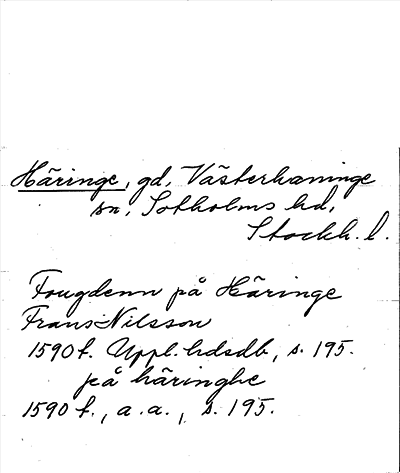 Häringe, gd, Västerhaninge
sn, Sotholms hd,
Stockh. l.
Fougdenn på Häringe
Frans Nilsson
1590 f. Uppl. hdsdb, s. 195.
på häringhe
1590 f., a. a., s. 195.